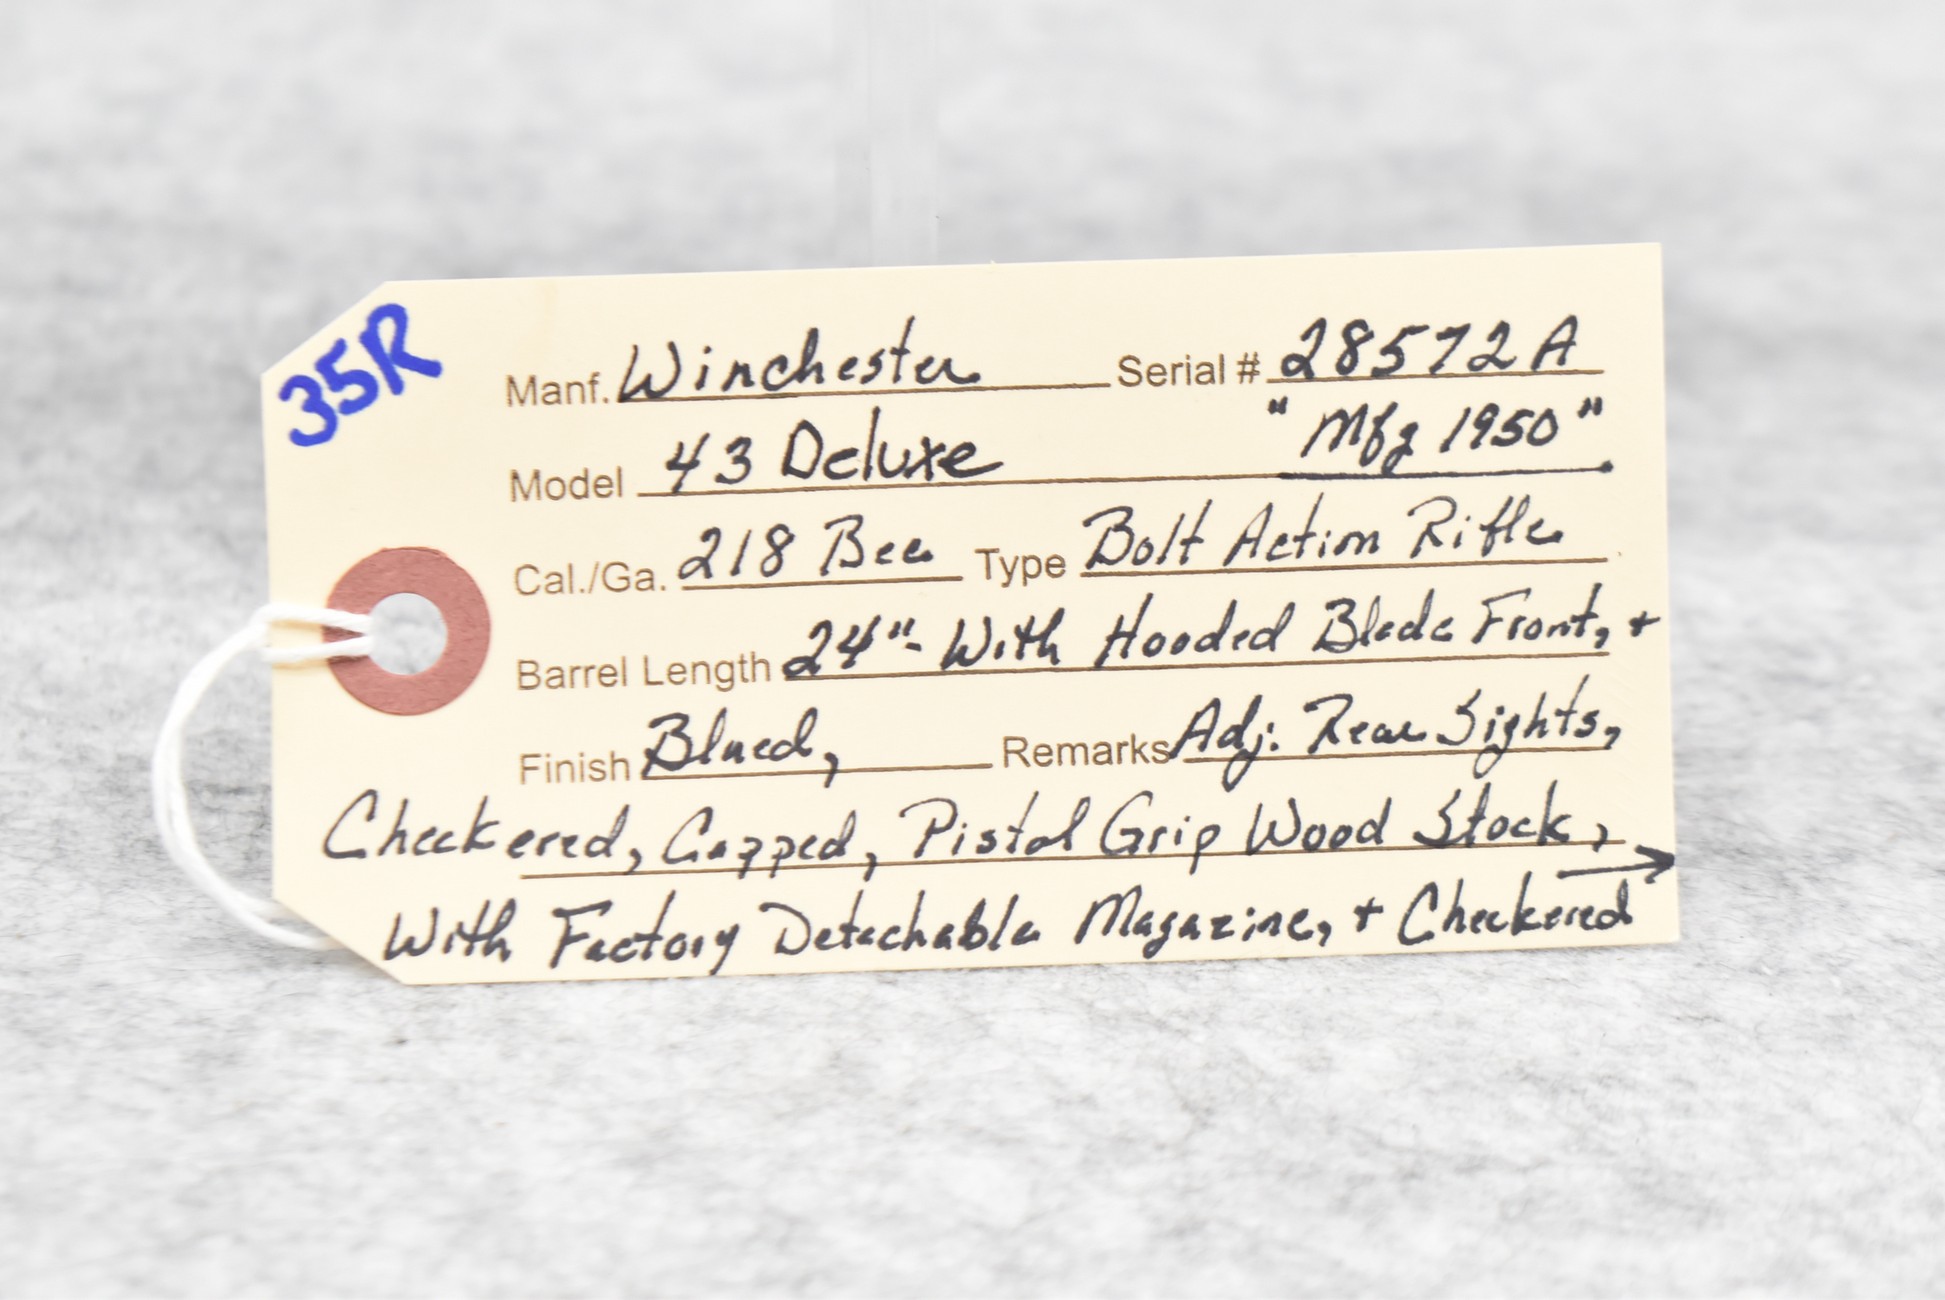 35R
Manf. Winchester Serial # 28572A
Model 43 Deluxe "Mfg 1950"
Cal./Ga. 218 Bee Type Bolt Action Rifle
Barrel Length 24"- With Hooded Blade Front, +
Finish Blued, Remarks Adj. Rear Sights,
Checkered, Capped, Pistol Grip Wood Stock, →
With Factory Detachable Magazine, + Checkered